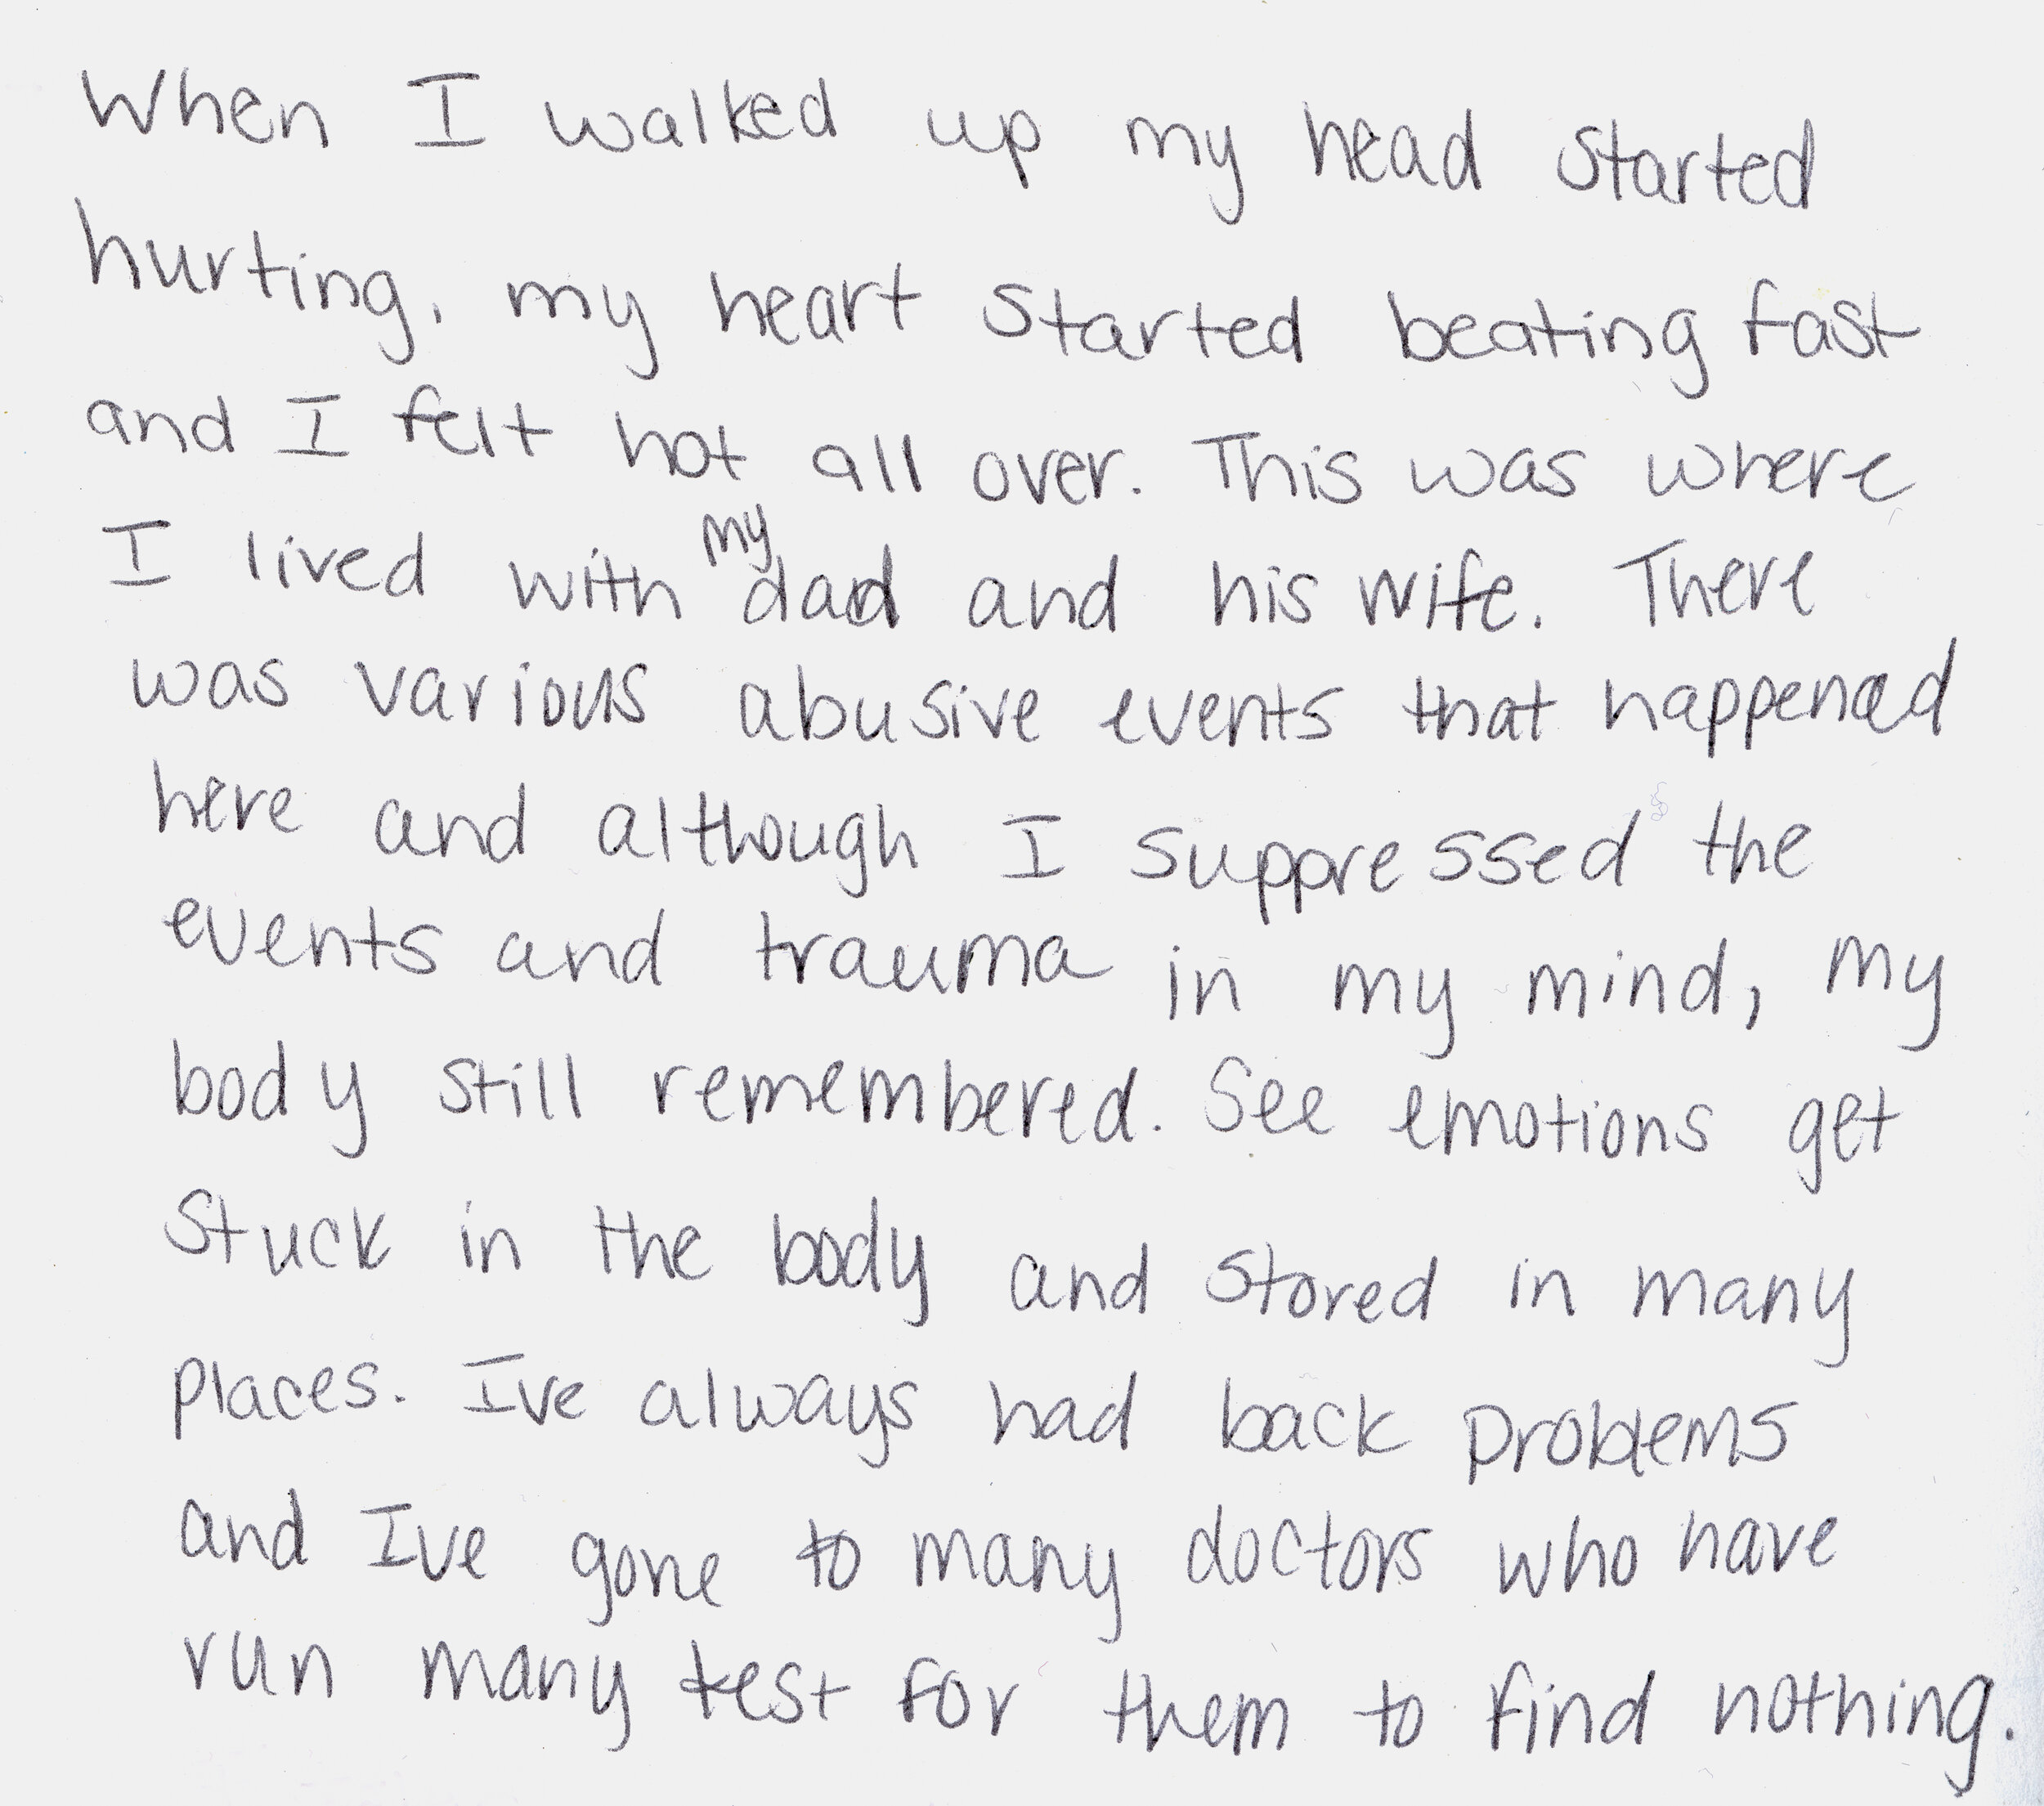 When I walked up my head started
hurting, my heart started beating fast
and I felt hot all over. This was where
I lived with my dad and his wife. There
was various abusive events that happened
here and although I suppressed the
events and trauma in my mind, my
body still remembered. See emotions get
stuck in the body and stored in many
places. Ive always had back problems
and Ive gone to many doctors who have
run many test for them to find nothing.